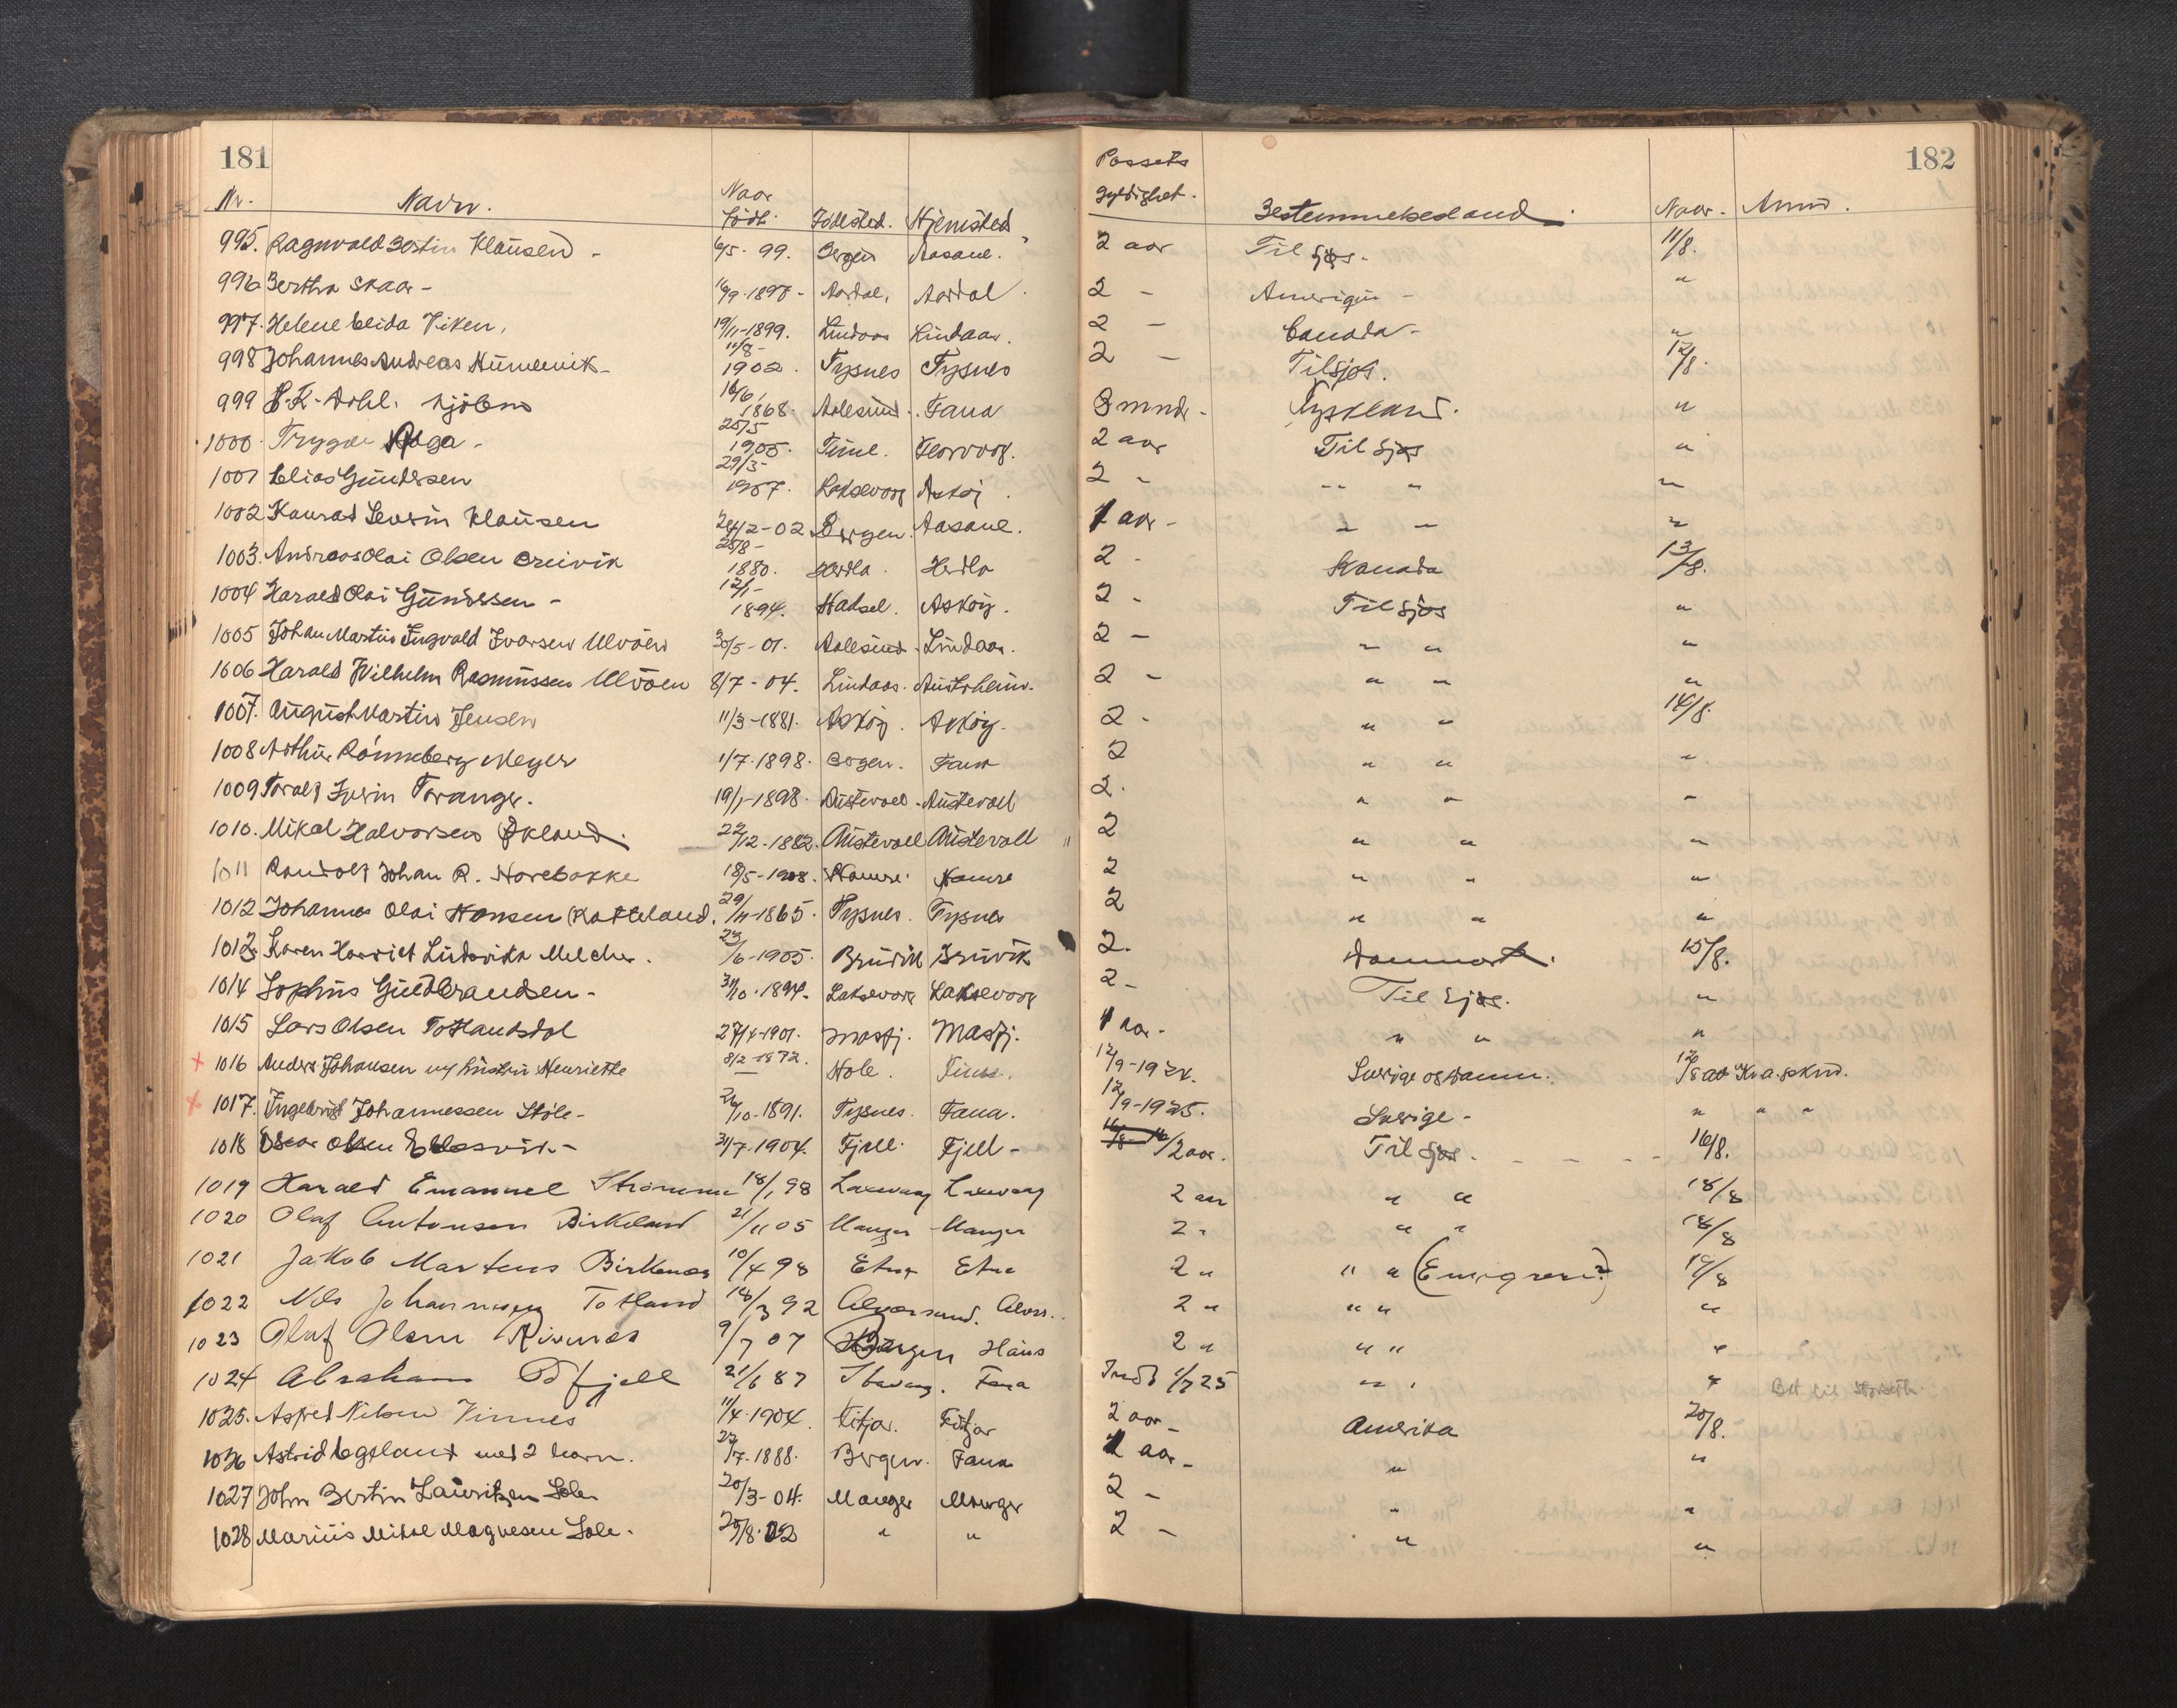 181
182
Nr. Navn. Naar född. Födested. Hjemsted Passets gyldighet. Bestemmelsesland. Naar. Anm.
995. Ragnvald Bertin Klausen - 6/5 - 99. Bergen Aasane. 2 aar Til sjøs. 11/8.
996 Bertha Skaar - 16/9-1898 - Aardal. Aardal 2 - - "
997. Helene Viken. 19/11-1899. Lindaas Lindaas. 2 - Canada - "
998 Johannes Andreas 11/8 - 1902. Tysnes Tysnes 2 - Til sjøs. 12/8.
999 1868. Aalesund. Fana 3 mndr - Tyskland. "
1000. Trygve 25/5 1905. Florvaag. 2 aar Til sjøs "
1001 Elias Gundersen 29/3 - 1907. Laksevaag Askøy. 2 - " " "
1002 Konrad Severin Klausen 24/2 - 02 Bergen. Aasane. 1 aar - " " "
1003. Andreas Olai Olsen 25/8 - 1880. Herdla. Herdla 2 - Kanada 13/8.
1004 Harald Olai Gundersen - 12/1 - 1894. Hadsel. Askøy. 2 - Til sjøs "
1005 Johan Martin Ingvald Ivarsen Ulvöen 30/5 - 01. Aalesund. Lindaas. 2 - " " "
1006 Harald Wilhelm Rasmussen Ulvöen 8/7 - 04. Lindaas. Austrheim. 2 - " " "
1007. August Martin Jensen 11/3-1881. Askøy. Askøy. 2 - " " 14/8.
1008 Arthur Rönneberg Meyer 1/7-1898. Bergen. Fana 2 " " "
1009 Toralf 19/1-1898. Austevoll. Austevoll 2. " " "
1010. Mikal Halvorsen Økland. 22/12-1882. Austevoll Austevoll " 2 " " "
1011 Randolf Johan R. Norebakke 18/5-1908. Hamre. Hamre 2 " " "
1012 Johannes Olai Hansen (Katteland. 29/11-1865. Tysnes. Tysnes 2 " " "
1013 Karen Harriet Ludovika Melcher. 23/6-1905. Bruvik Bruvik 2. Danmark. 15/8.
1014 Sophus Guldbrandsen - 31/10-1894. Laksevaag Laksevaag 2 - Til sjøs. "
1015 Lars Olsen Totlandsdal 27/4-1901. Masfj. Masfj. 1 aar - " " "
+ 1016 Anders Johansen og hustru Henriette 8/2-1872. Hole. 12/9-192 Sverige og Danm. 12/8
+ 1017. Ingebrigt Johannessen Stöle - 1891. Tysnes. Fana. 12/9-1925. Sverige - " " "
1018 Oscar Olsen 31/7-1904. Fjell. Fjell - 2 aar. Til sjøs. - - - - 16/8.
1019 Harald Emanuel Strömme 18/1 98 Laxevaag Laxevaag 2 aar " " 18/8
1020 Olaf Antonsen Birkeland 21/11 05 Manger Manger 2 " " " 18/8
1021 Jakob Martens Birkenes 10/4 98 Etne Etne 2 " " " (Emigrere?) 19/8
1022 Nils Johannesen Totland 18/3 92 Alversund. Alvers. 2 " " " "
1023 Olaf Olsen Rivenes 9/7 07 Bergen Haus 2 " " " "
1024 Abraham 21/6 87 Stavang. Fana Indt 1/7 25 " " " Bet. til
1025. Alfred Nilsen Vinnes 11/4-1904. Fitjar. Fitjar 2 aar - Amerika 20/8.
1026 Astrid Egeland med 2 barn. 22/7-1888. Bergen. Fana 1 aar - " "
1027 John Bertin Lauritzen Sole 20/3-04. Manger Manger 2 - " "
1028 Marius Mikal Magnesen Sole. 29/8-02 " " 2 - " "